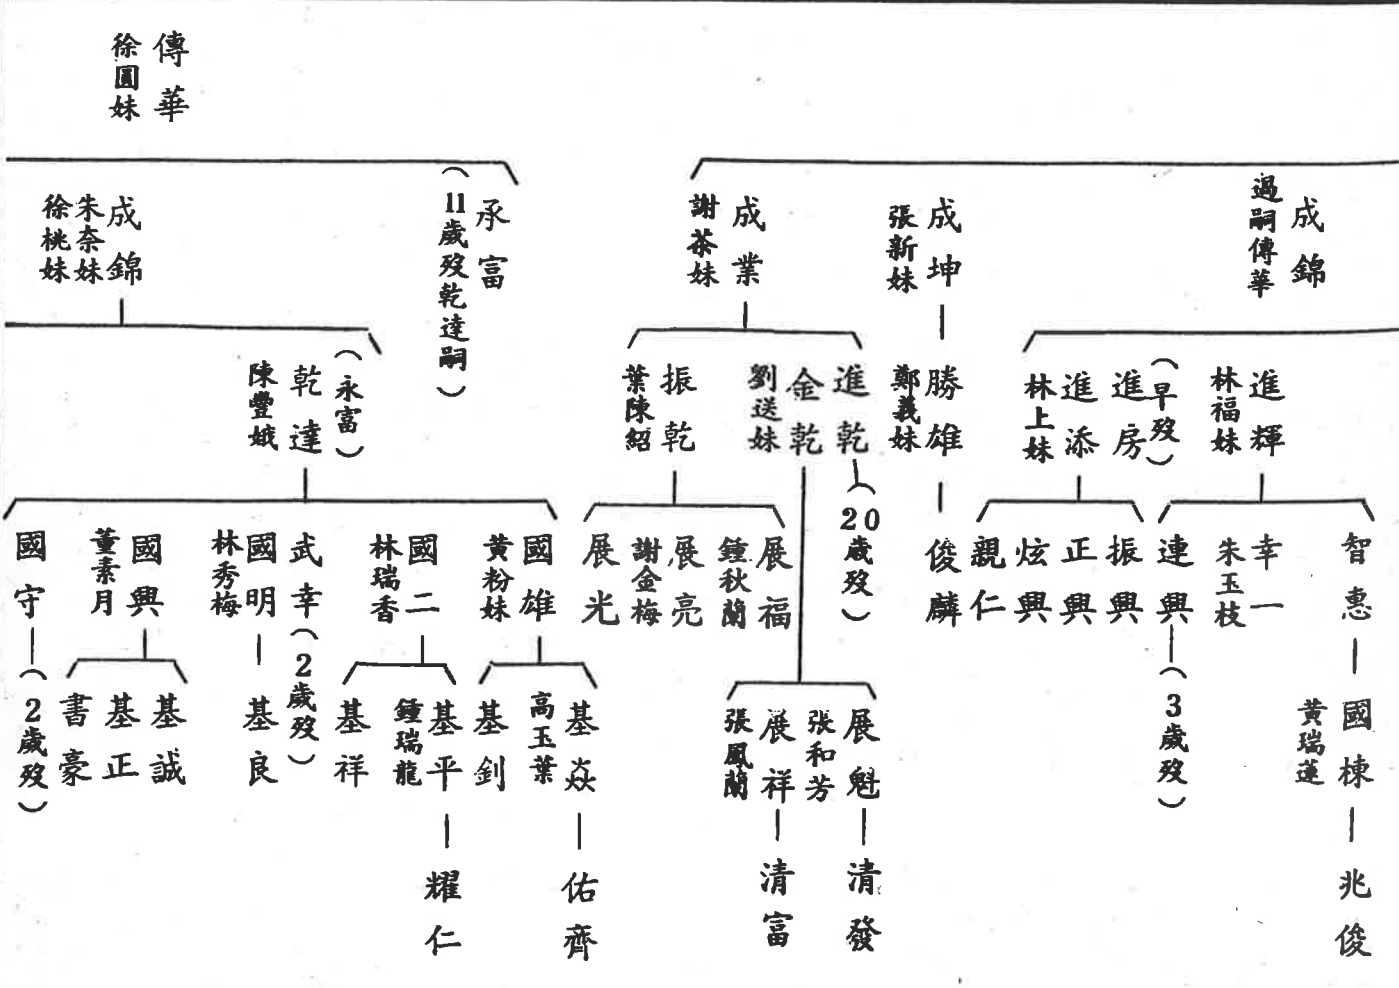 傳華
徐圓妹
成錦
過嗣傳華
成坤
張新妹
成業
謝茶妹
承富
(11歲歿乾達嗣)
成錦
朱奈妹
徐桃妹
進輝
林福妹
進房
(早歿)
進添
林上妹
勝雄
鄭義妹
進乾
金乾
劉送妹
振乾
葉陳紹
(永富)
乾達
陳豐娥
智惠
幸一
朱玉枝
連興
振興
正興
炫興
親仁
俊麟
(20歲歿)
展福
鍾秋蘭
展亮
謝金梅
展光
國雄
黃粉妹
國二
林瑞香
武幸
(2歲歿)
國明
林秀梅
國興
董素月
國守
(2歲歿)
國棟
黃瑞蓮
(3歲歿)
展魁
張和芳
展祥
張鳳蘭
基焱
高玉葉
基釗
基平
鍾瑞龍
基祥
基良
基誠
基正
書豪
兆俊
清發
清富
佑齊
耀仁